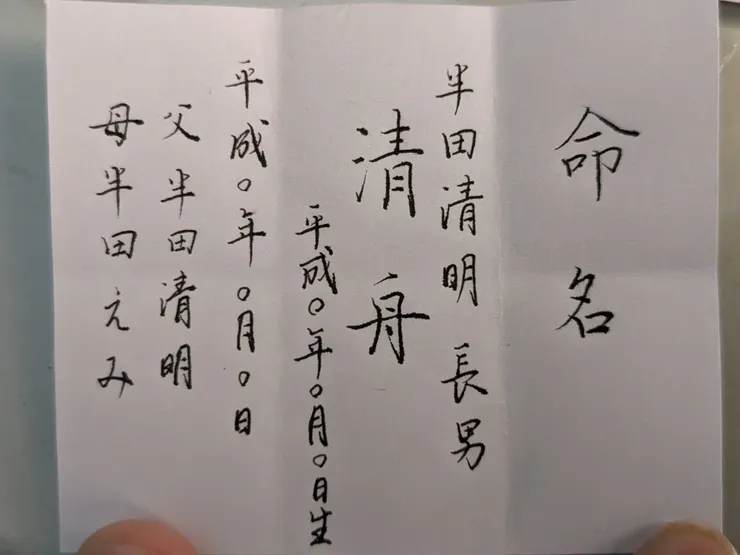 命名
半田清明 長男
清舟
平成〇年〇月〇日生
平成〇年〇月〇日
父 半田清明
母 半田えみ